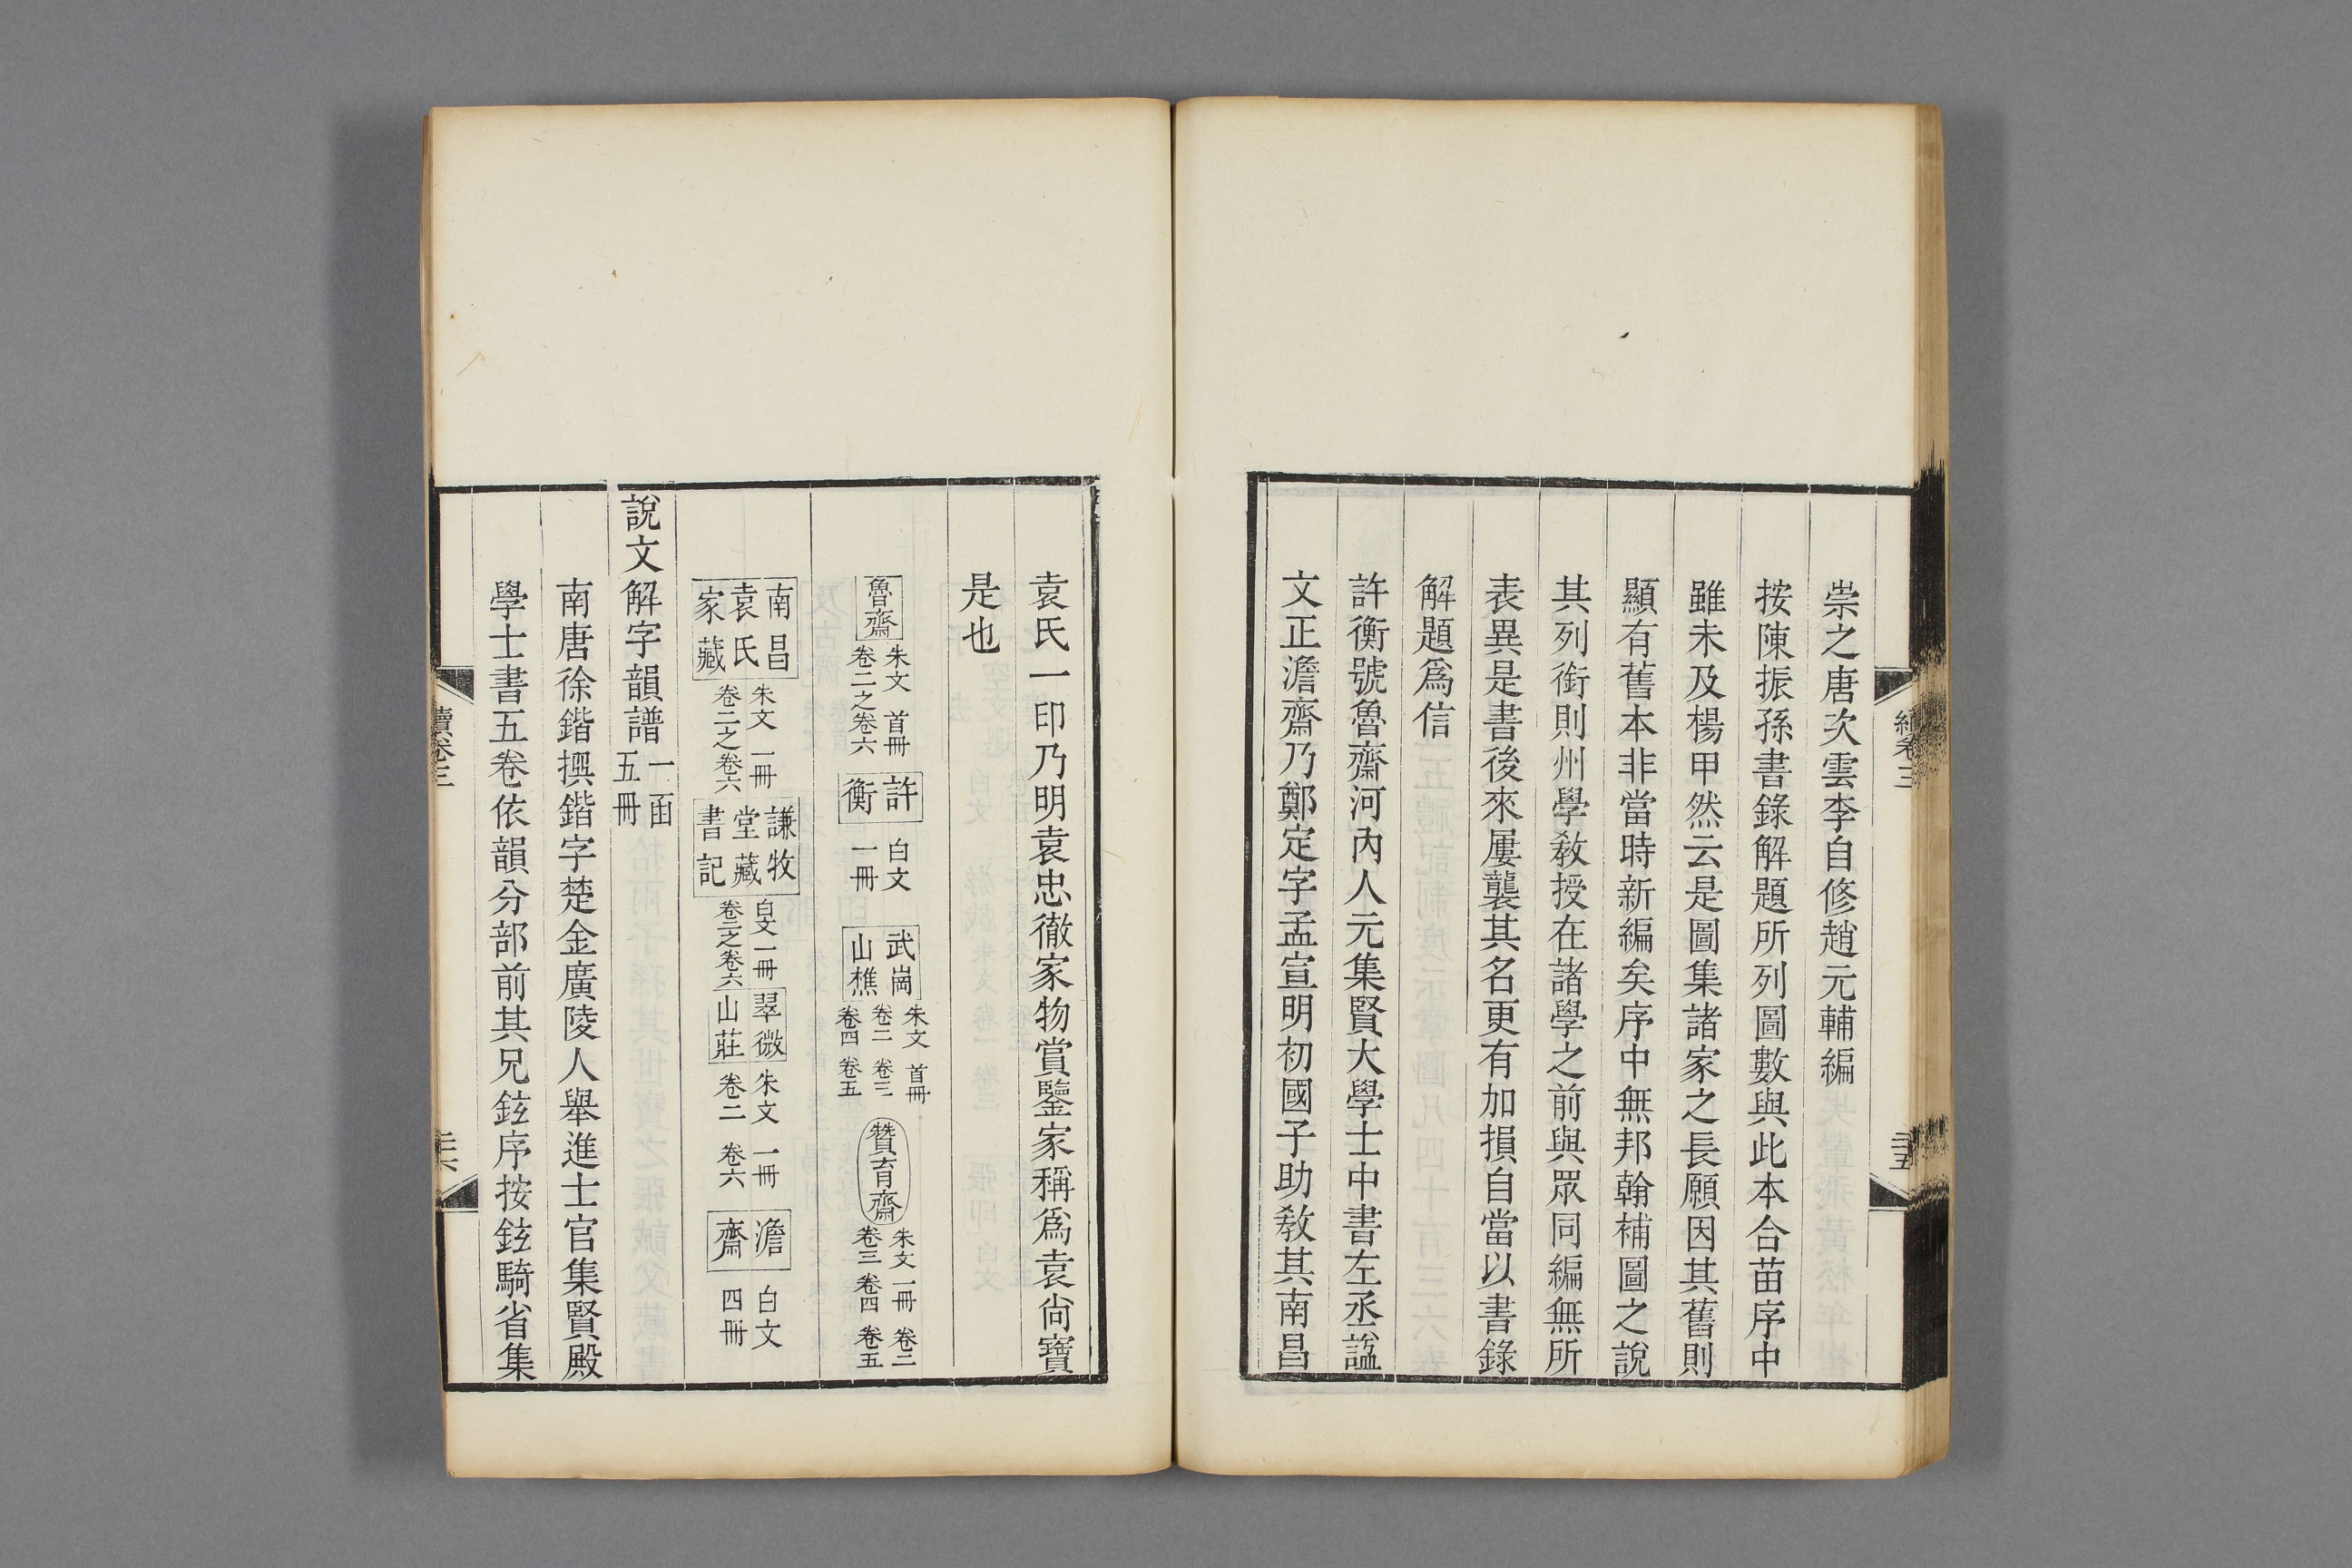 續卷三
二十五
崇之唐次雲李自修趙元輔編
按陳振孫書錄解題所列圖數與此本合苗序中
雖未及楊甲然云是圖集諸家之長願因其舊則
顯有舊本非當時新編矣序中無邦翰補圖之說
其列銜則州學敎授在諸學之前與眾同編無所
表異是書後來屢襲其名更有加損自當以書錄
解題爲信
許衡號魯齋河內人元集賢大學士中書左丞諡
文正澹齋乃鄭定字孟宣明初國子助敎其南昌
袁氏一印乃明袁忠徹家物賞鑒家稱爲袁尙寶
是也
魯齋 朱文 首冊 卷二之卷六 許衡 白文 一冊 武崗山樵 朱文 首冊 卷二 卷三 卷四 卷五 贊育齋 朱文 一冊 卷二 卷三 卷四 卷五
南昌袁氏家藏 朱文 一冊 卷二之卷六 謙牧堂藏書記 白文 一冊 卷二之卷六 翠微山莊 朱文 一冊 卷二 卷六 澹齋 白文 四冊
說文解字韻譜 一函 五冊
南唐徐鍇撰鍇字楚金廣陵人舉進士官集賢殿
學士書五卷依韻分部前其兄鉉序按鉉騎省集
續卷三
二十六